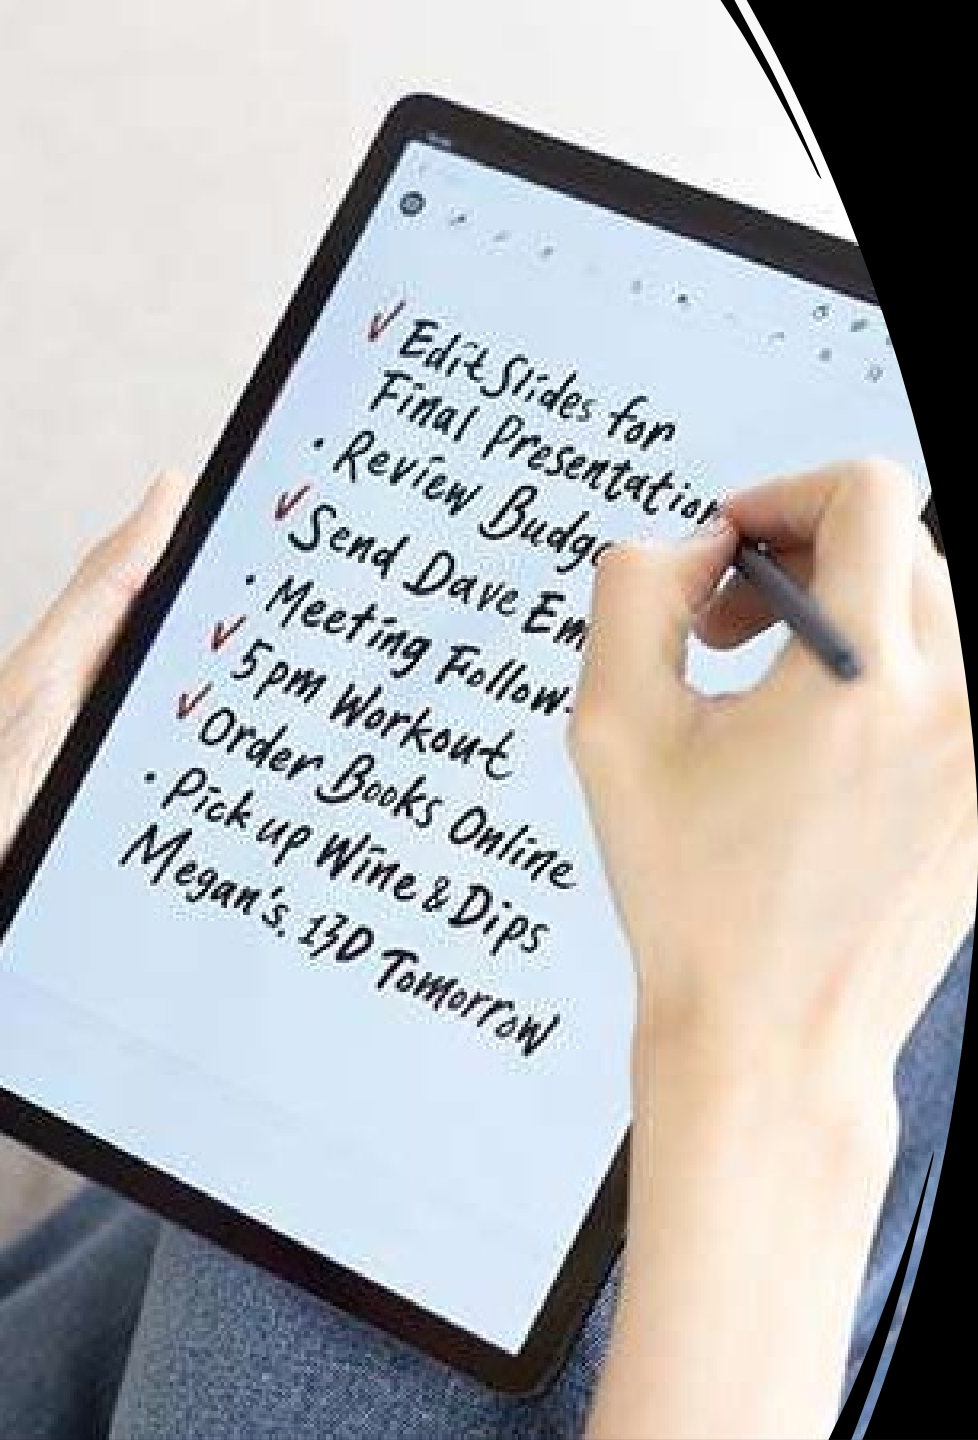 ✓ Edit Slides for
Final Presentation
• Review Budge
✓ Send Dave Em
• Meeting Follow-
✓ 5pm Workout
✓ Order Books Online
• Pick up Wine & Dips
Megan's. 130 Tomorrow